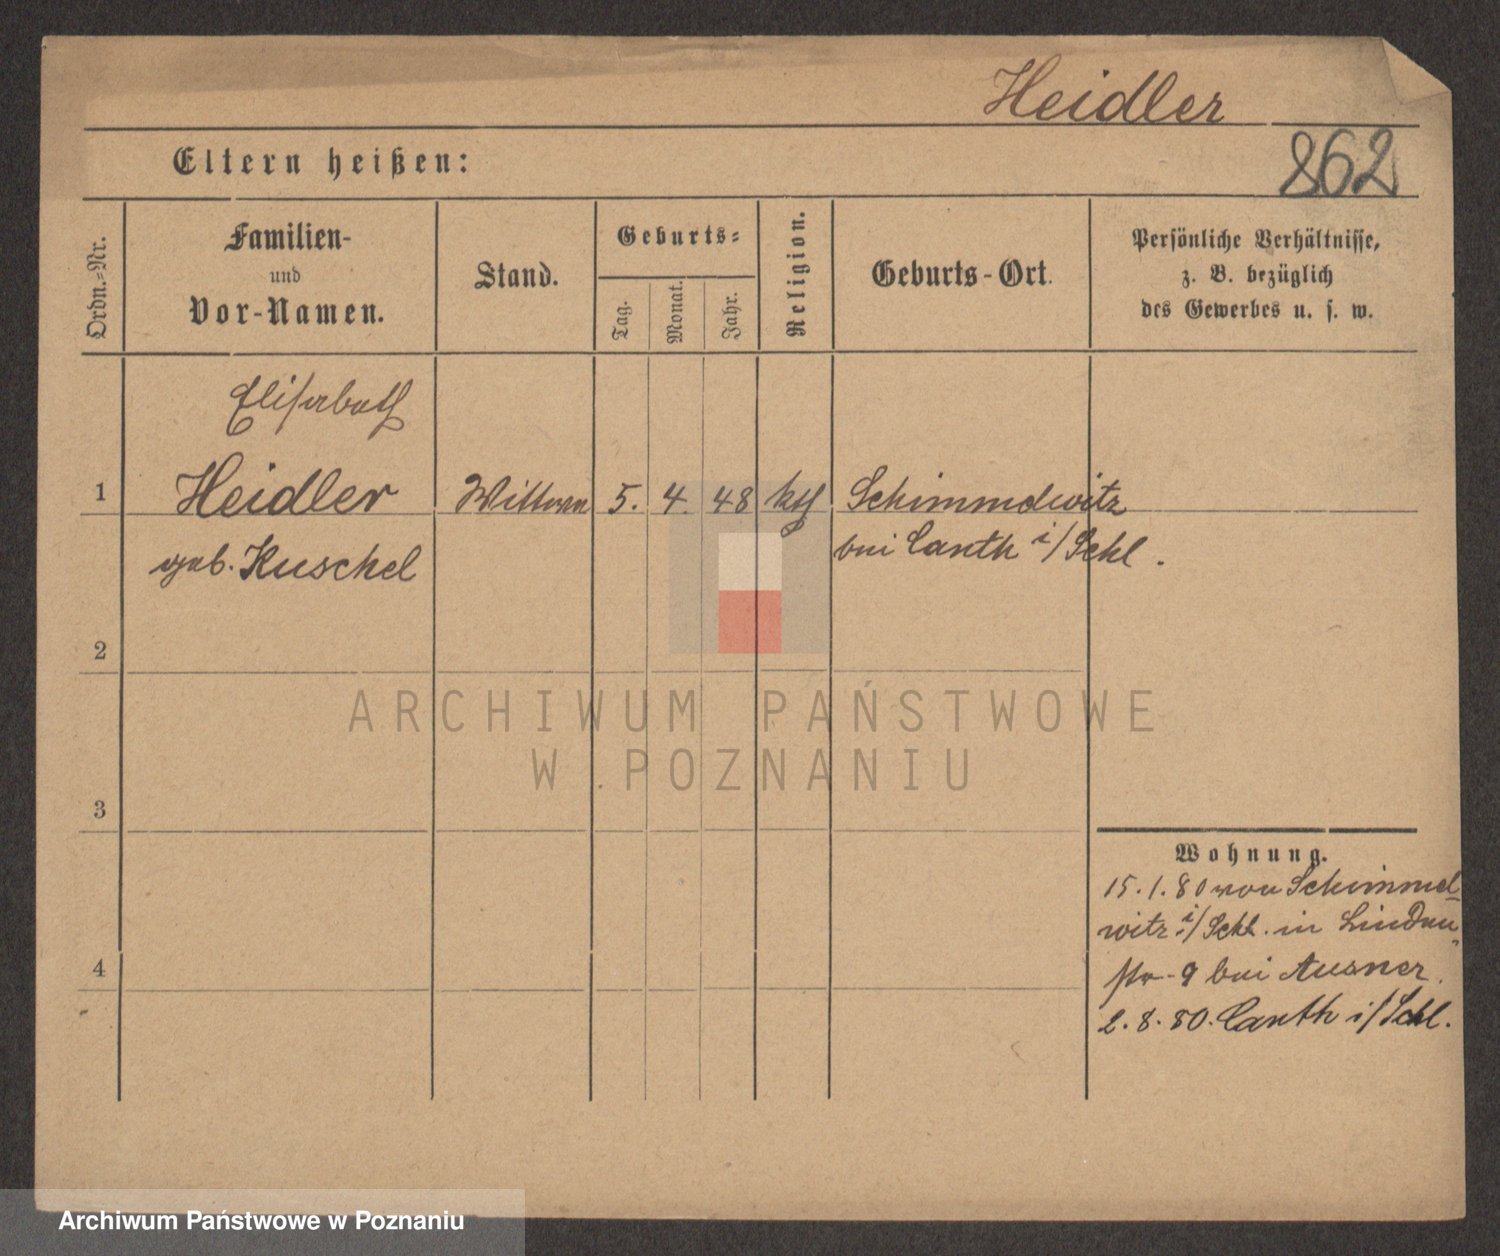 Heidler
862
Eltern heißen:
Ordn.-Nr.
Familien-
und
Vor-Namen.
Stand.
Geburts-
Tag.
Monat.
Jahr.
Religion.
Geburts-Ort.
Persönliche Verhältnisse,
z. B. bezüglich
des Gewerbes u. s. w.
Elisabeth
1 Heidler Wittwe 5. 4. 48 kth Schimmelwitz
geb. Kuschel
bei Canth i/Schl.
2
3
4
Wohnung.
15.1.80 von Schimmel
witz i/Schl. in Linden
str. 9 bei Ausner.
2.8.80. Canth i/Schl.
ARCHIWUM PAŃSTWOWE
W POZNANIU
Archiwum Państwowe w Poznaniu